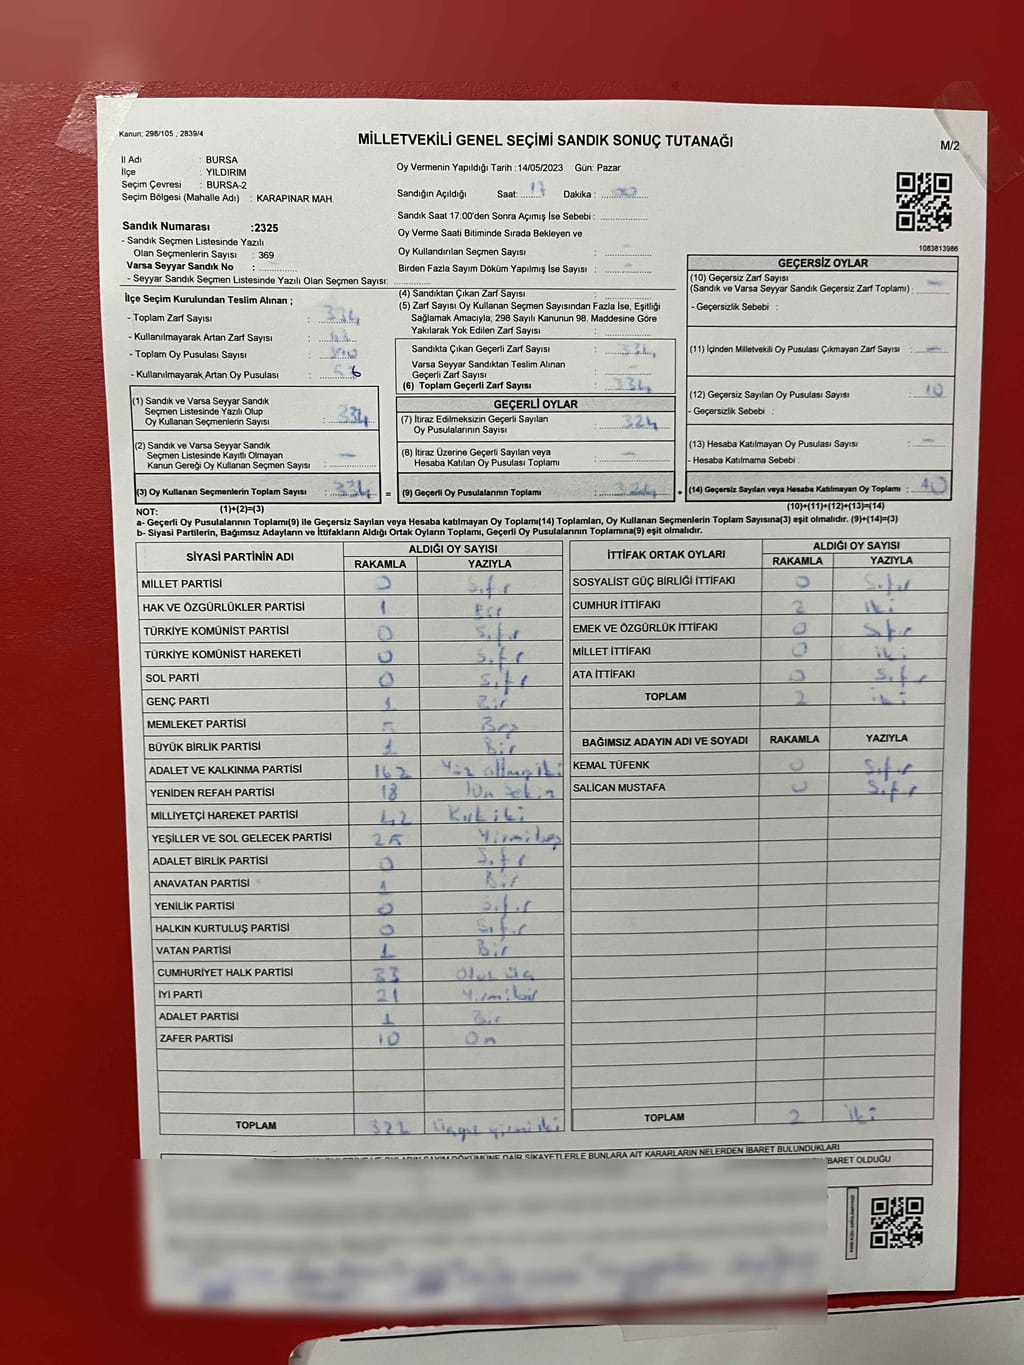 Kanun; 298/105 , 2839/4
MİLLETVEKİLİ GENEL SEÇİMİ SANDIK SONUÇ TUTANAĞI
M/2
İl Adı : BURSA
İlçe : YILDIRIM
Seçim Çevresi : BURSA-2
Seçim Bölgesi (Mahalle Adı) : KARAPINAR MAH.
Oy Vermenin Yapıldığı Tarih :14/05/2023 Gün: Pazar
Sandığın Açıldığı Saat: 17 Dakika : 00
Sandık Saat 17:00'den Sonra Açımış İse Sebebi :
Oy Verme Saati Bitiminde Sırada Bekleyen ve
Oy Kullandırılan Seçmen Sayısı : -
Birden Fazla Sayım Döküm Yapılmış İse Sayısı : -
1083813986
Sandık Numarası :2325
- Sandık Seçmen Listesinde Yazılı
Olan Seçmenlerin Sayısı : 369
Varsa Seyyar Sandık No :
- Seyyar Sandık Seçmen Listesinde Yazılı Olan Seçmen Sayısı:
İlçe Seçim Kurulundan Teslim Alınan ;
- Toplam Zarf Sayısı : 334
- Kullanılmayarak Artan Zarf Sayısı :
- Toplam Oy Pusulası Sayısı : 390
- Kullanılmayarak Artan Oy Pusulası : 56
(1) Sandık ve Varsa Seyyar Sandık
Seçmen Listesinde Yazılı Olup
Oy Kullanan Seçmenlerin Sayısı : 334
(2) Sandık ve Varsa Seyyar Sandık
Seçmen Listesinde Kayıtlı Olmayan
Kanun Gereği Oy Kullanan Seçmen Sayısı : -
(3) Oy Kullanan Seçmenlerin Toplam Sayısı : 334 =
(4) Sandıktan Çıkan Zarf Sayısı :
(5) Zarf Sayısı Oy Kullanan Seçmen Sayısından Fazla İse, Eşitliği
Sağlamak Amacıyla; 298 Sayılı Kanunun 98. Maddesine Göre
Yakılarak Yok Edilen Zarf Sayısı :
Sandıkta Çıkan Geçerli Zarf Sayısı : 334
Varsa Seyyar Sandıktan Teslim Alınan
Geçerli Zarf Sayısı : -
(6) Toplam Geçerli Zarf Sayısı : 334
GEÇERLİ OYLAR
(7) İtiraz Edilmeksizin Geçerli Sayılan
Oy Pusulalarının Sayısı : 324
(8) İtiraz Üzerine Geçerli Sayılan veya
Hesaba Katılan Oy Pusulası Toplamı : -
(9) Geçerli Oy Pusulalarının Toplamı : 324 +
GEÇERSİZ OYLAR
(10) Geçersiz Zarf Sayısı
(Sandık ve Varsa Seyyar Sandık Geçersiz Zarf Toplamı) : -
- Geçersizlik Sebebi :
(11) İçinden Milletvekili Oy Pusulası Çıkmayan Zarf Sayısı : -
(12) Geçersiz Sayılan Oy Pusulası Sayısı : 10
- Geçersizlik Sebebi :
(13) Hesaba Katılmayan Oy Pusulası Sayısı : -
- Hesaba Katılmama Sebebi :
(14) Geçersiz Sayılan veya Hesaba Katılmayan Oy Toplamı : 10
NOT: (1)+(2)=(3) (10)+(11)+(12)+(13)=(14)
a- Geçerli Oy Pusulalarının Toplamı(9) ile Geçersiz Sayılan veya Hesaba katılmayan Oy Toplamı(14) Toplamları, Oy Kullanan Seçmenlerin Toplam Sayısına(3) eşit olmalıdır. (9)+(14)=(3)
b- Siyasi Partilerin, Bağımsız Adayların ve İttifakların Aldığı Ortak Oyların Toplamı, Geçerli Oy Pusulalarının Toplamına(9) eşit olmalıdır.
SİYASİ PARTİNİN ADI ALDIĞI OY SAYISI
RAKAMLA YAZIYLA
MİLLET PARTİSİ 0 Sıfır
HAK VE ÖZGÜRLÜKLER PARTİSİ 1 Bir
TÜRKİYE KOMÜNİST PARTİSİ 0 Sıfır
TÜRKİYE KOMÜNİST HAREKETİ 0 Sıfır
SOL PARTİ 0 Sıfır
GENÇ PARTİ 1 Bir
MEMLEKET PARTİSİ 5 Beş
BÜYÜK BİRLİK PARTİSİ 1 Bir
ADALET VE KALKINMA PARTİSİ 162 Yüz altmış iki
YENİDEN REFAH PARTİSİ 18 On sekiz
MİLLİYETÇİ HAREKET PARTİSİ 42 Kırk iki
YEŞİLLER VE SOL GELECEK PARTİSİ 25 Yirmibeş
ADALET BİRLİK PARTİSİ 0 Sıfır
ANAVATAN PARTİSİ 1 Bir
YENİLİK PARTİSİ 0 Sıfır
HALKIN KURTULUŞ PARTİSİ 0 Sıfır
VATAN PARTİSİ 1 Bir
CUMHURİYET HALK PARTİSİ 33 Otuz üç
İYİ PARTİ 21 Yirmibir
ADALET PARTİSİ 1 Bir
ZAFER PARTİSİ 10 On
TOPLAM 322 Üçyüz yirmi iki
İTTİFAK ORTAK OYLARI ALDIĞI OY SAYISI
RAKAMLA YAZIYLA
SOSYALİST GÜÇ BİRLİĞİ İTTİFAKI 0 Sıfır
CUMHUR İTTİFAKI 2 iki
EMEK VE ÖZGÜRLÜK İTTİFAKI 0 Sıfır
MİLLET İTTİFAKI 0 iki
ATA İTTİFAKI 0 Sıfır
TOPLAM 2 iki
BAĞIMSIZ ADAYIN ADI VE SOYADI RAKAMLA YAZIYLA
KEMAL TÜFENK 0 Sıfır
SALİCAN MUSTAFA 0 Sıfır
TOPLAM 2 İki
DÖKÜMÜNE DAİR ŞİKAYETLERLE BUNLARA AİT KARARLARIN NELERDEN İBARET BULUNDUKLARI
İBARET OLDUĞU